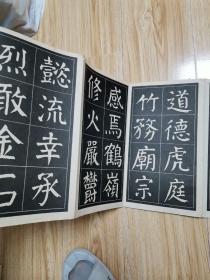 道德虎庭
竹務廟宗
感焉鶴嶺
修火嚴鬱
懿流幸承
烈敢金石